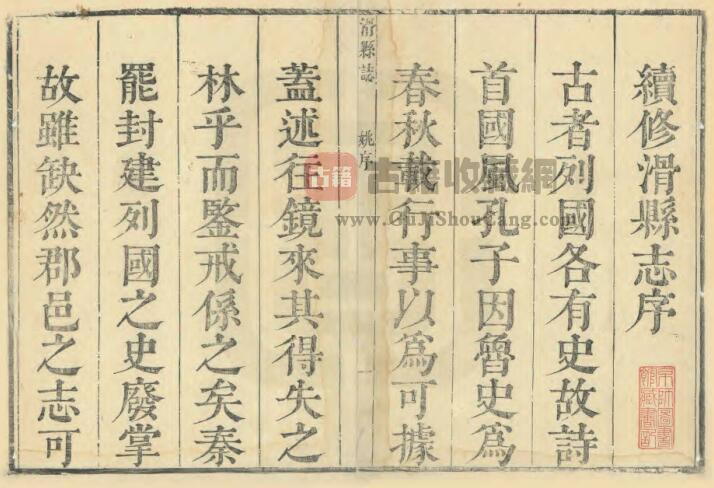 續修滑縣志序
古者列國各有史故詩
首國風孔子因魯史爲
春秋載行事以爲可據
滑縣誌
姚序
蓋述往鏡來其得失之
林乎而監戒係之矣秦
罷封建列國之史廢掌
故雖缺然郡邑之志可
古籍
古籍收藏網
www.GuJiShouCang.com